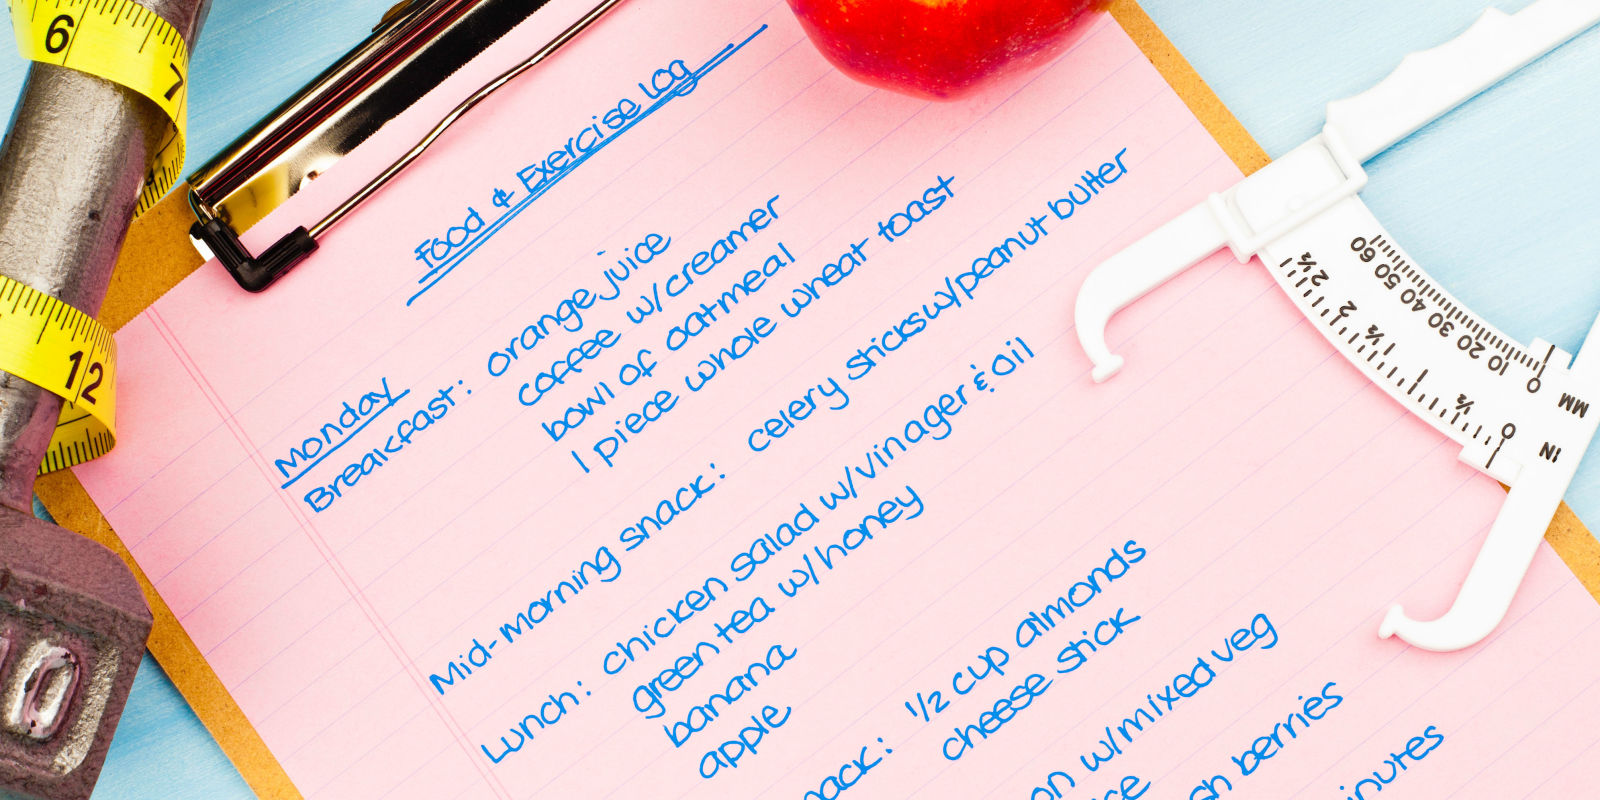 Food & Exercise Log
Monday
Breakfast: orange juice
coffee w/creamer
bowl of oatmeal
1 piece whole wheat toast
Mid-morning snack: celery sticks w/peanut butter
Lunch: chicken salad w/vinager & oil
green tea w/honey
banana
apple
nack: 1/2 cup almonds
cheese stick
on w/mixed veg
ice
sh berries
inutes
6
7
12
0
60 50 40 30 20 10 0
MM
2½ 2 1½ 1 ½ 0
IN